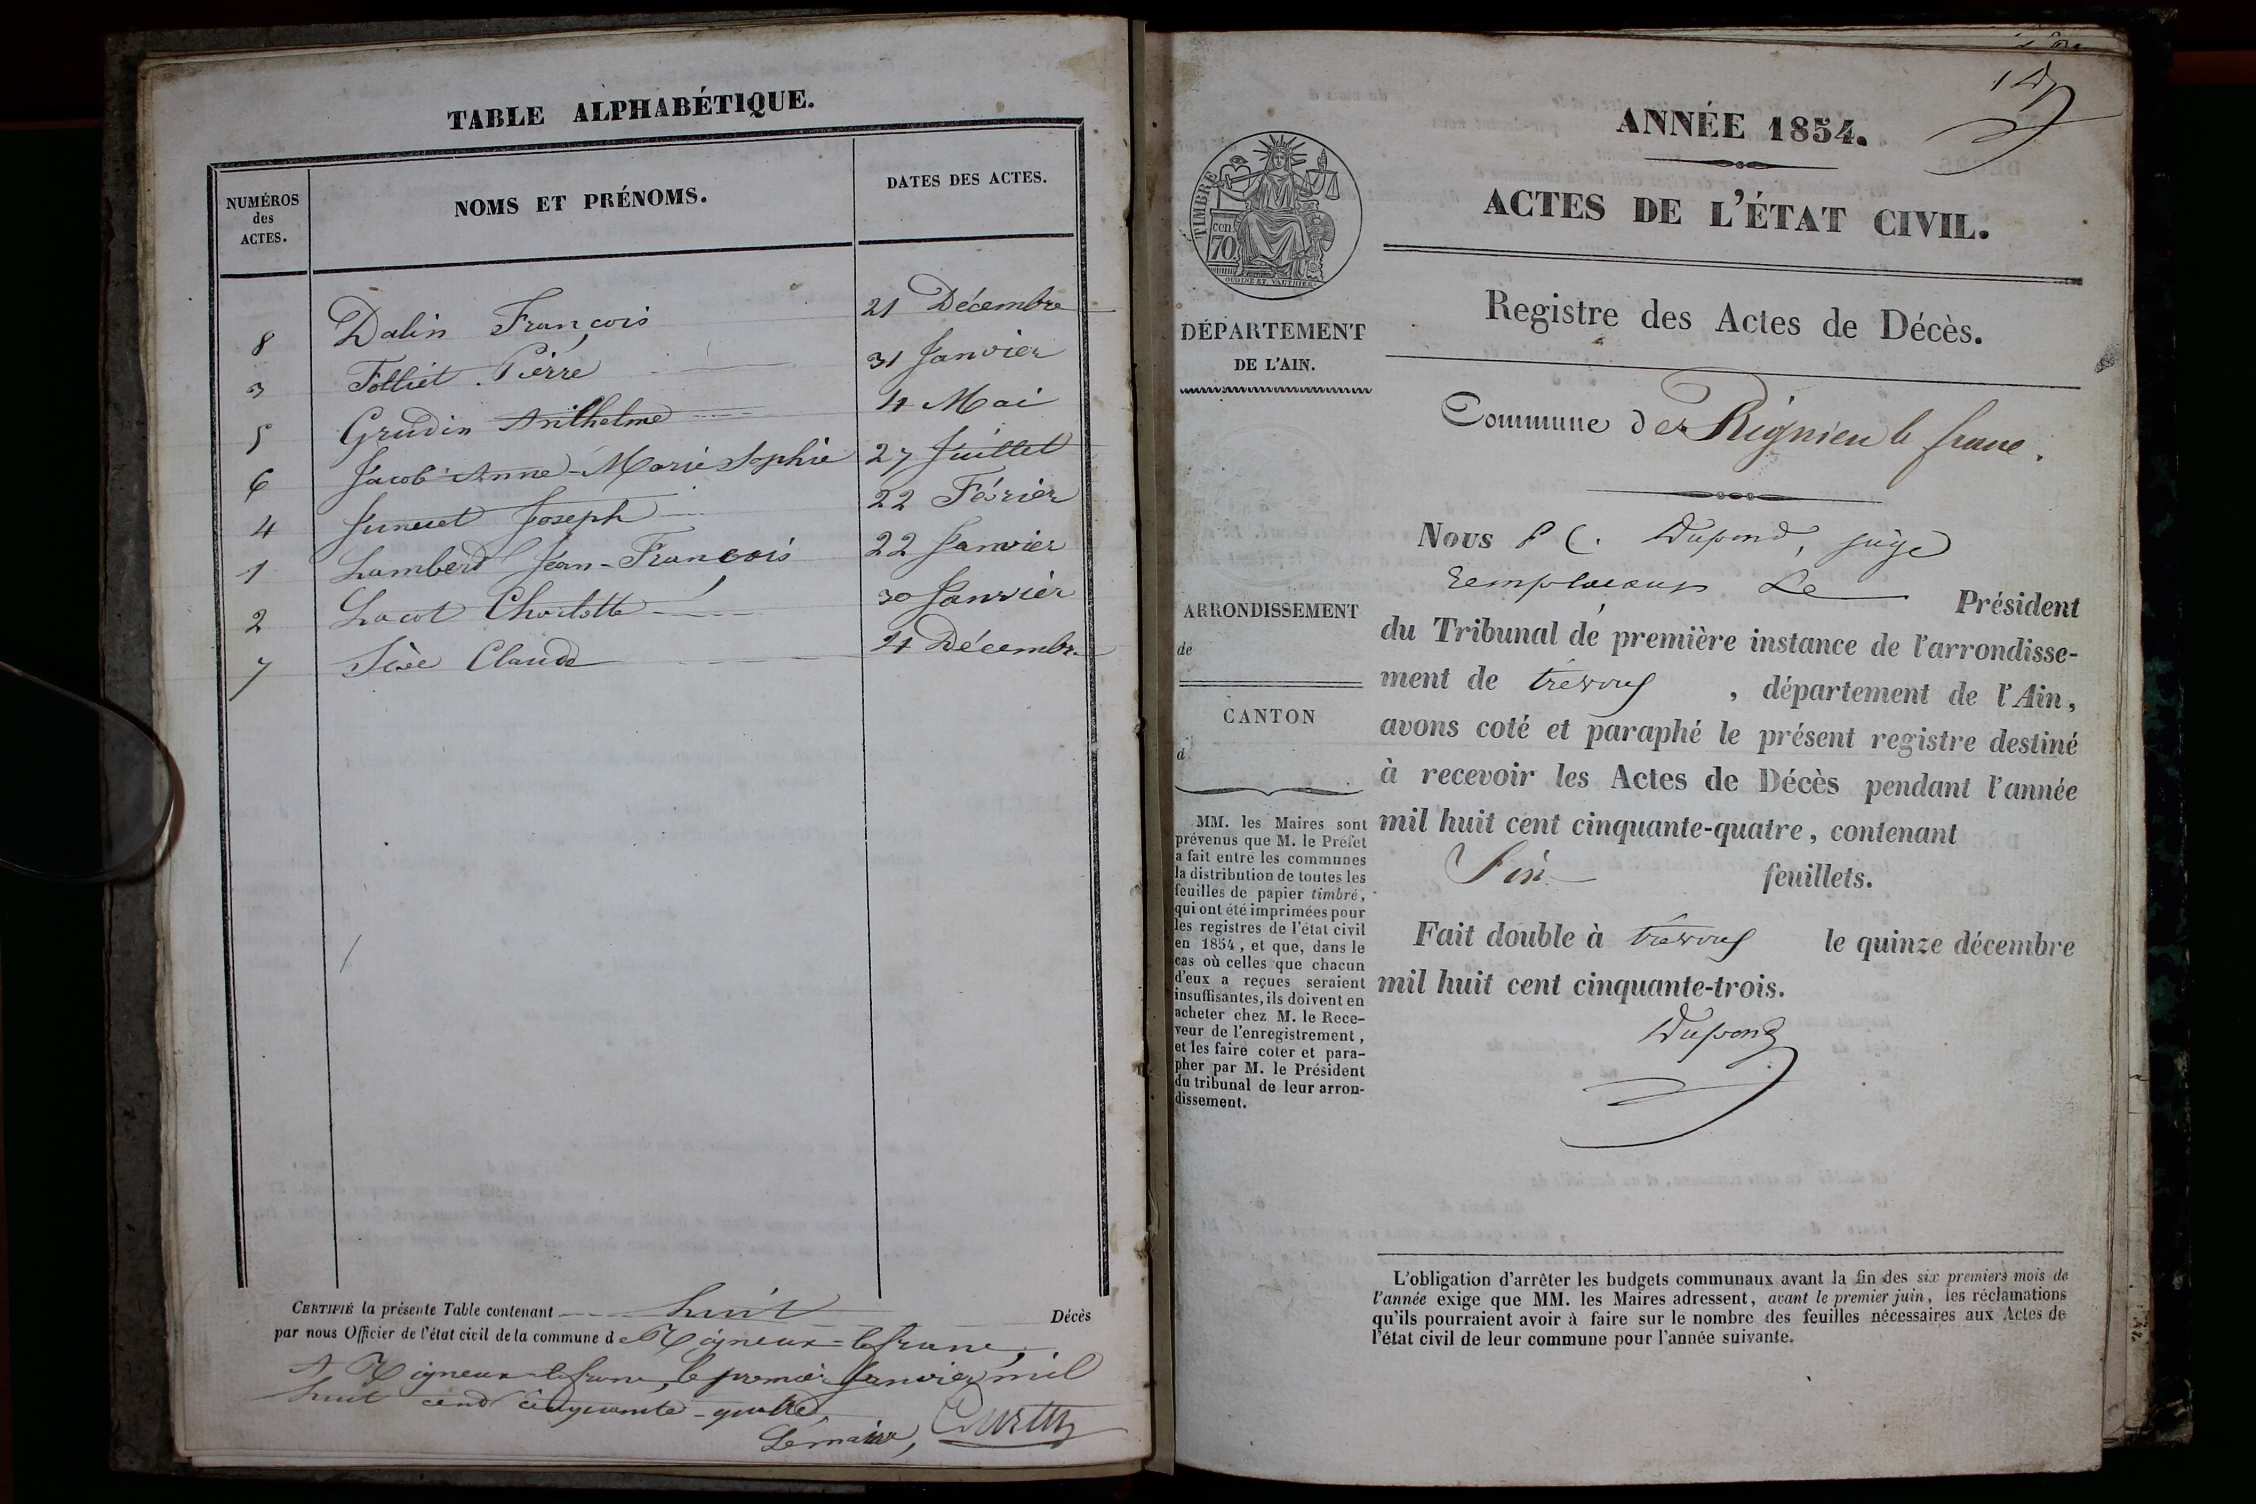 TABLE ALPHABÉTIQUE.
NUMÉROS des ACTES.
NOMS ET PRÉNOMS.
DATES DES ACTES.
8 Dalin François 21 Décembre
3 Folliet Pierre 31 Janvier
5 Grudin Anthelme 4 Mai
6 Jacob Anne-Marie Sophie 27 Juillet
4 Joseph 22 Février
1 Lambert Jean-François 22 Janvier
2 Lacot Charlotte 30 Janvier
7 Claude 4 Décembre
CERTIFIÉ la présente Table contenant huit Décès
par nous Officier de l'état civil de la commune de Rigneux-le franc,
A Rigneux le franc, le premier Janvier mil
huit cent cinquante-quatre
Le maire,
ANNÉE 1854.
ACTES DE L'ÉTAT CIVIL.
TIMBRE
70 cen.
Registre des Actes de Décès.
DÉPARTEMENT
DE L'AIN.
Commune de Rignieu le franc.
ARRONDISSEMENT
de
CANTON
d
MM. les Maires sont
prévenus que M. le Préfet
a fait entre les communes
la distribution de toutes les
feuilles de papier timbré,
qui ont été imprimées pour
les registres de l'état civil
en 1854, et que, dans le
cas où celles que chacun
d'eux a reçues seraient
insuffisantes, ils doivent en
acheter chez M. le Rece-
veur de l'enregistrement,
et les faire coter et para-
pher par M. le Président
du tribunal de leur arron-
dissement.
Nous P C. Dupond, juge
remplaçant Le Président
du Tribunal de première instance de l'arrondisse-
ment de trévoux, département de l'Ain,
avons coté et paraphé le présent registre destiné
à recevoir les Actes de Décès pendant l'année
mil huit cent cinquante-quatre, contenant
Six feuillets.
Fait double à trévoux le quinze décembre
mil huit cent cinquante-trois.
Dupond
L'obligation d'arrêter les budgets communaux avant la fin des six premiers mois de
l'année exige que MM. les Maires adressent, avant le premier juin, les réclamations
qu'ils pourraient avoir à faire sur le nombre des feuilles nécessaires aux Actes de
l'état civil de leur commune pour l'année suivante.